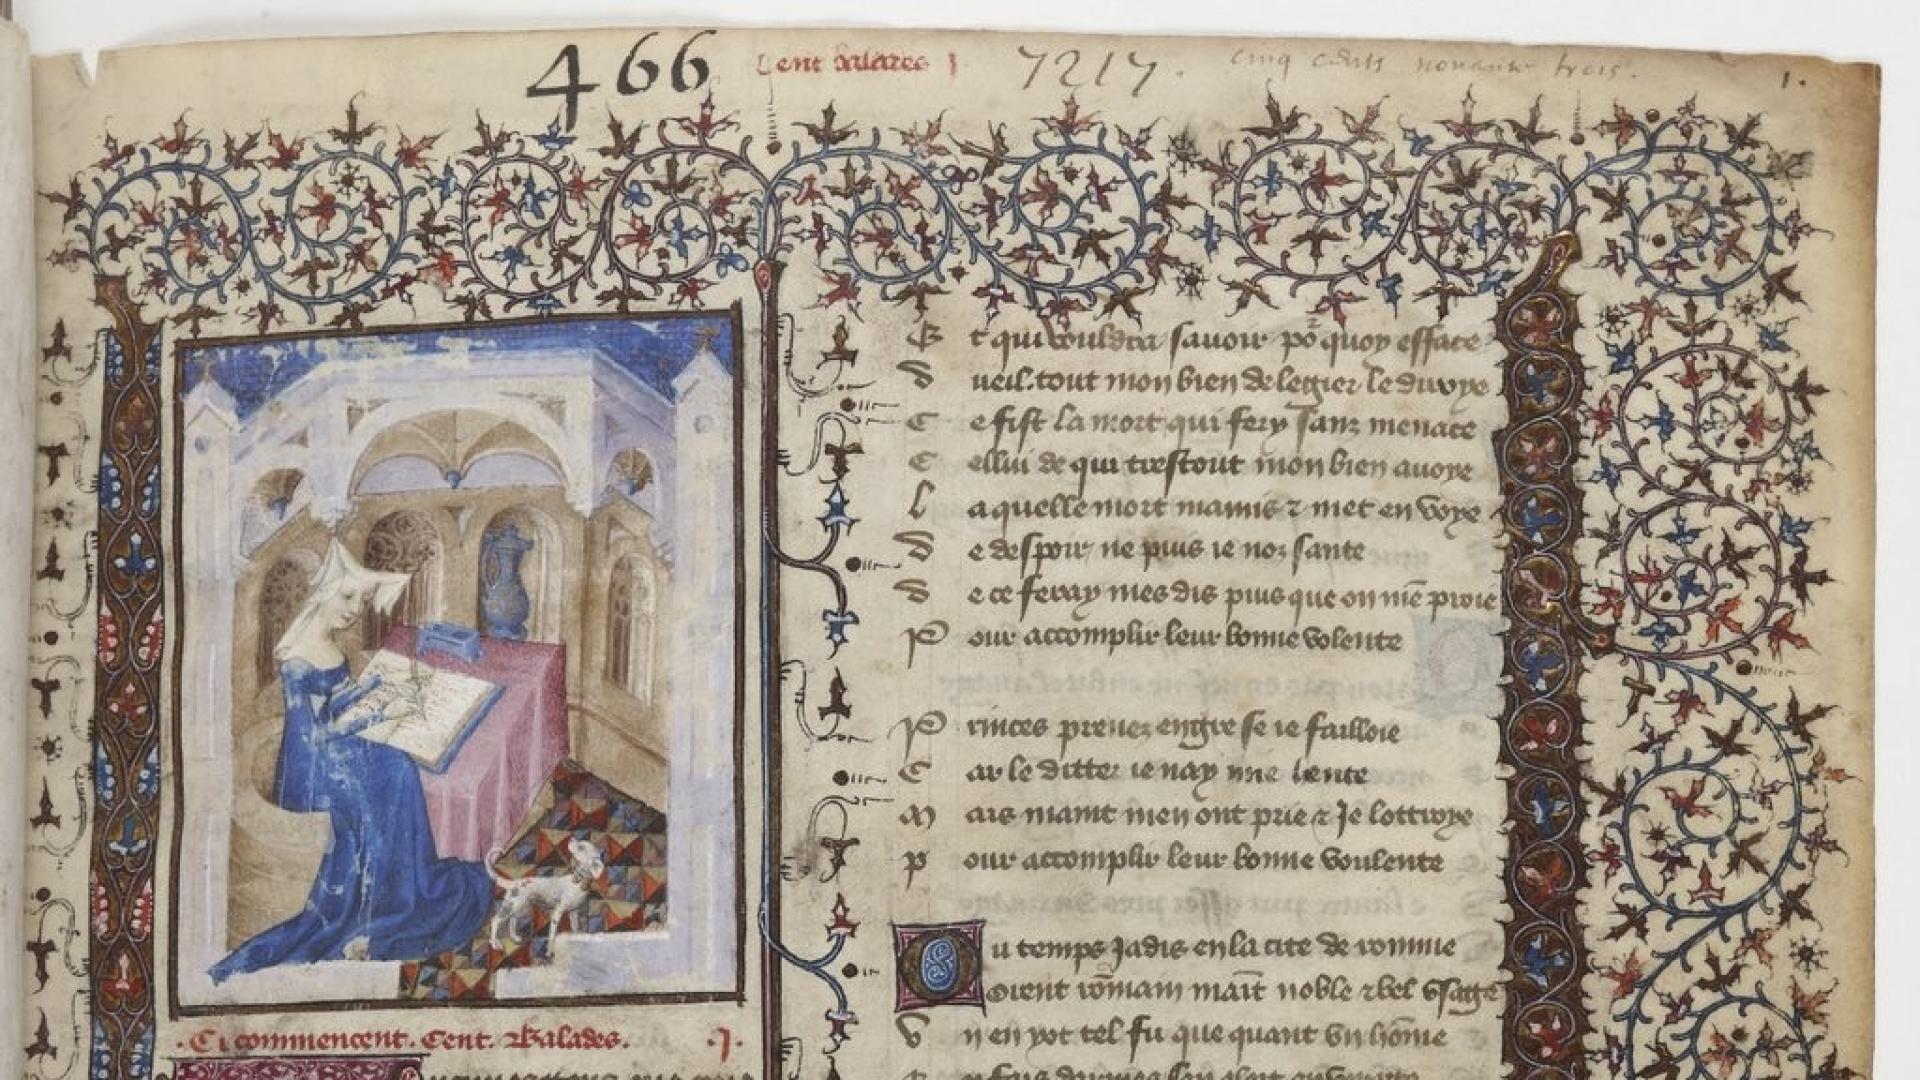 466 Cent balades j 7217. cinq cents nonante trois. 1.
.Ci commencent. Cent. Balades. .j.
Et qui vouldra savoir po quoy efface
dueil. tout mon bien de legier le diroye
Ce fist la mort qui fery sanz menace
Cellui de qui trestout mon bien avoye
Laquelle mort ma mis & met en voye
de despoir ne puis ie noz sante
de ce feray mes dis puis que on men proie
Pour accomplir leur bonne volente
Princes prenez en gre se ie failloie
Car le ditter ie nay mie hente
Mais maint men ont prie & Je lottroye
pour accomplir leur bonne voulente
Ou temps Jadis en la cite de romme
orent romain maint noble & bel usage
Vn en yot tel fu que quant un homme